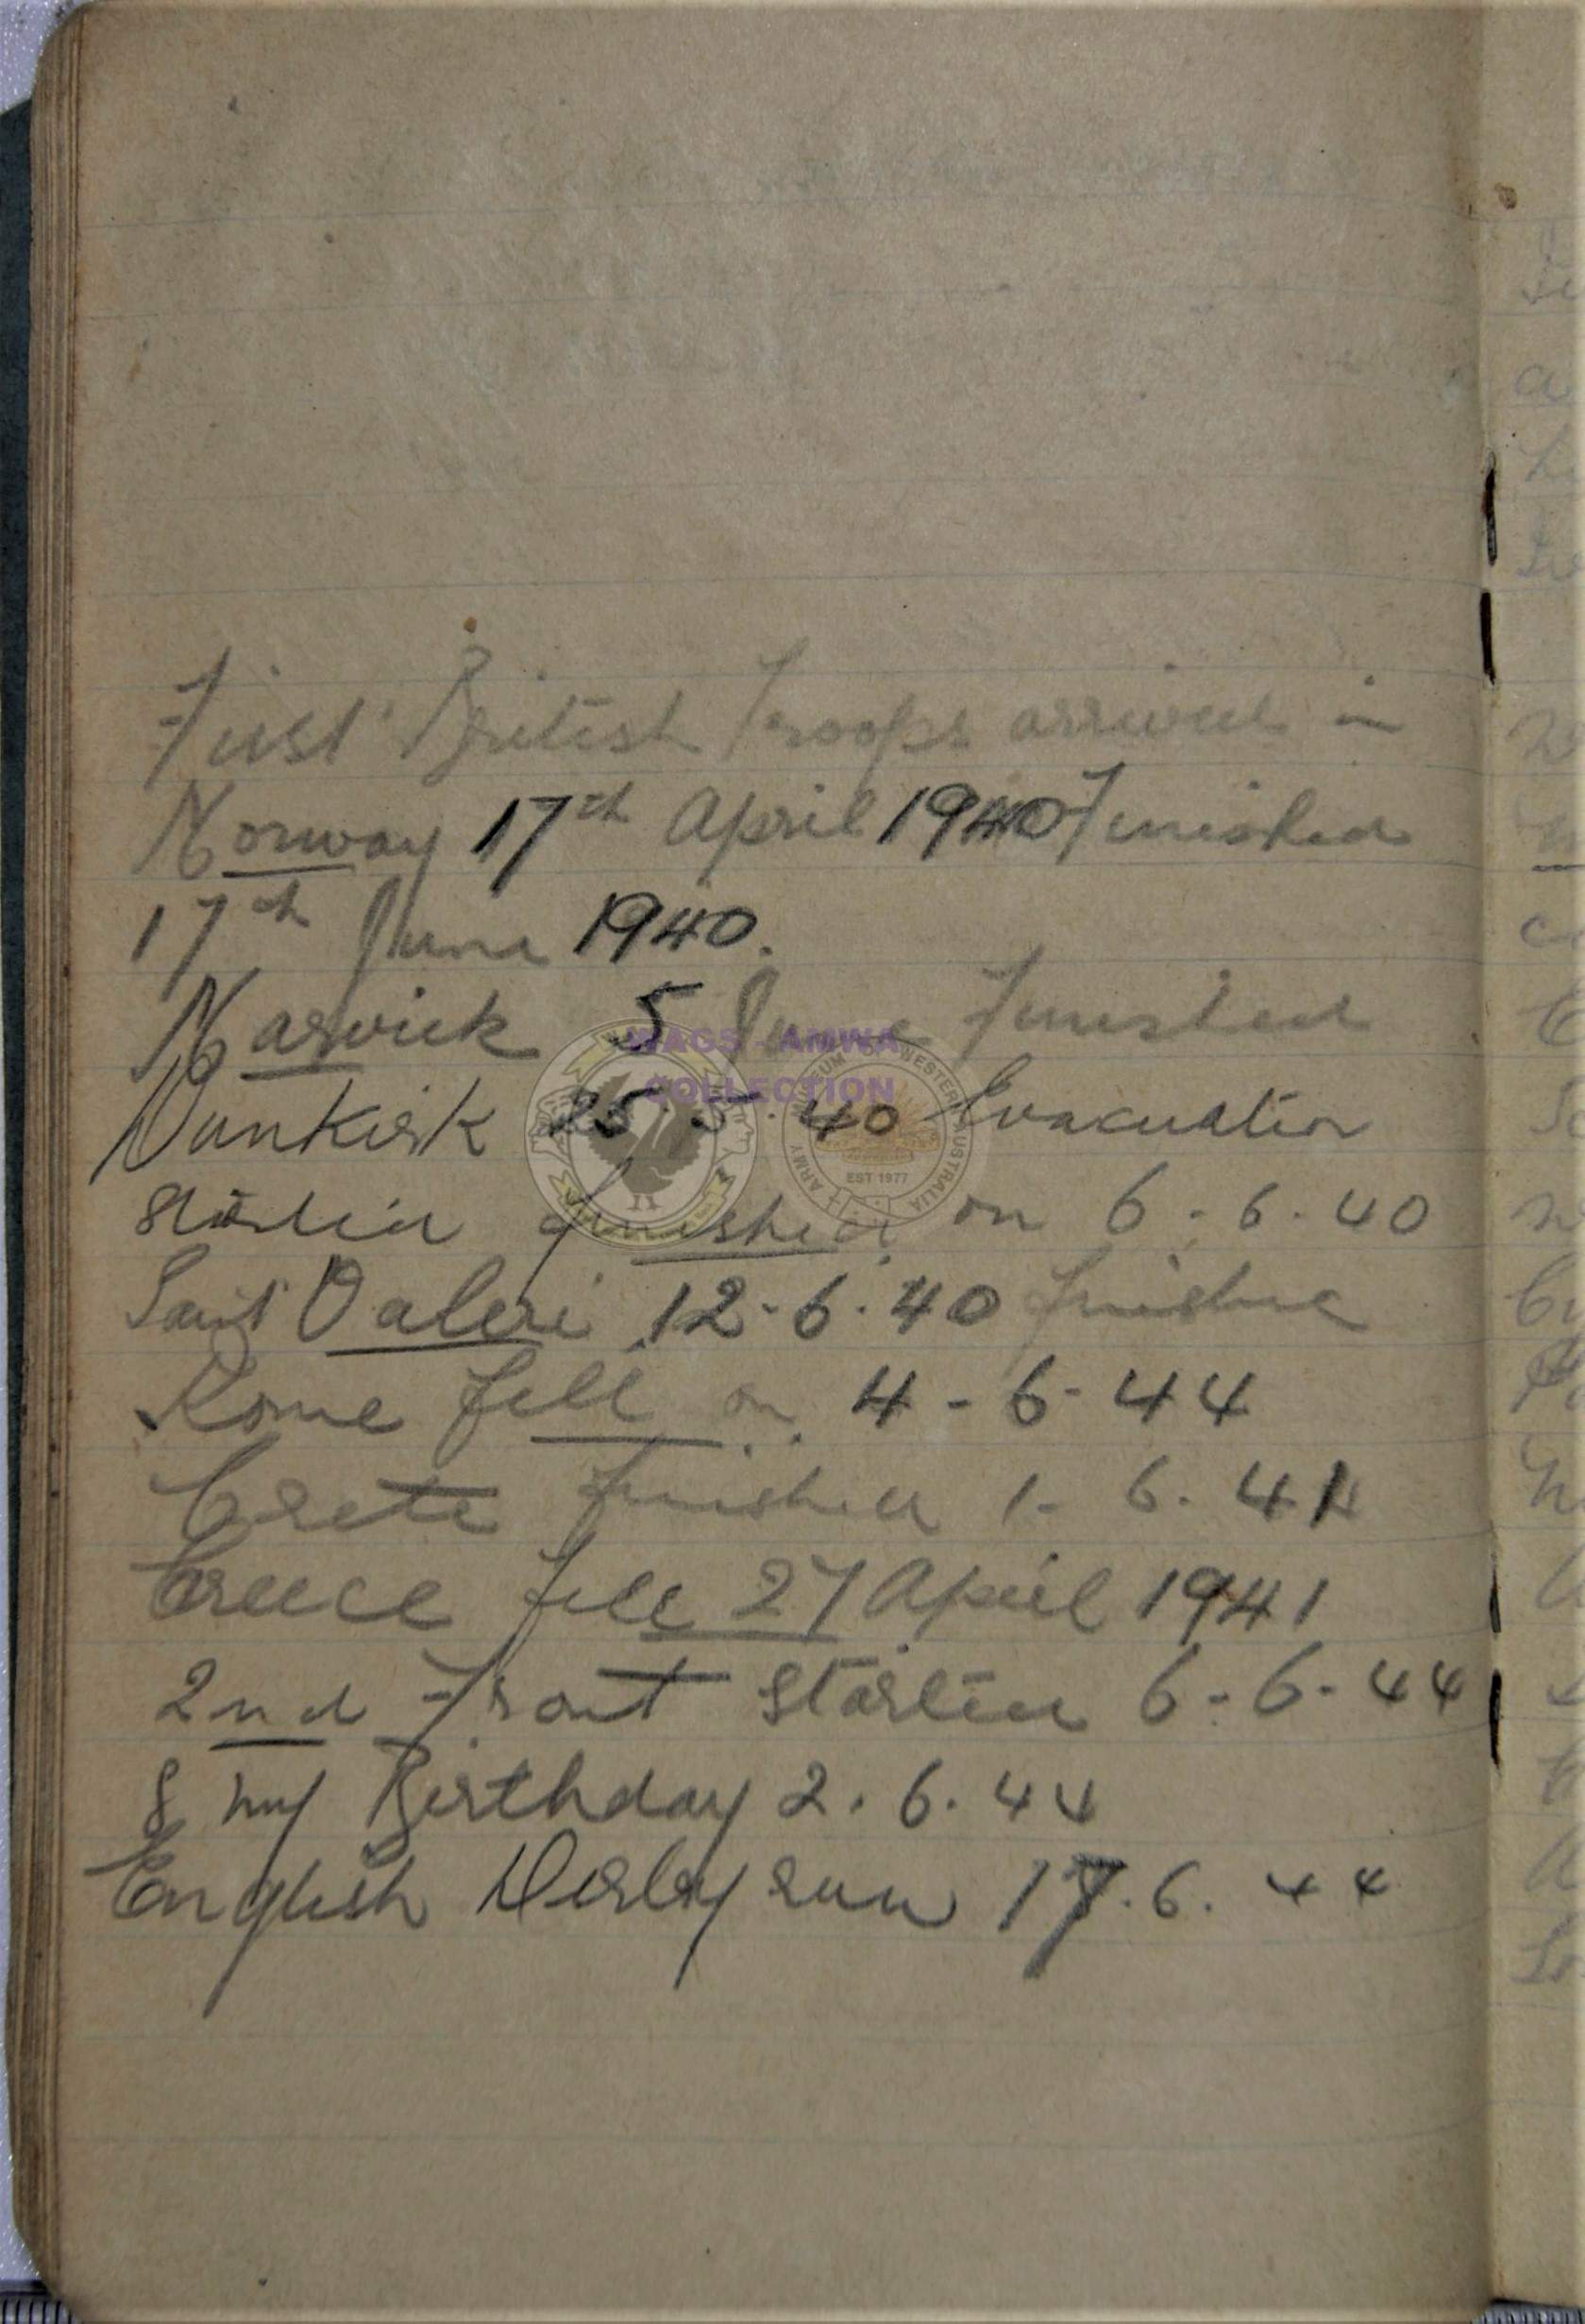 First British Troops arrived in
Norway 17th April 1940 Finished
17th June 1940.
Narvick 5 June Finished
WAGS - AMWA
COLLECTION
Dunkirk 25.5.40 Evacuation
started finished on 6.6.40
Saint Valeri 12-6.40 finished
Rome fell on 4-6-44
Crete finished 1-6.41
Greece fell 27 April 1941
2nd Front Started 6-6-44
& my Birthday 2.6.44
English Derby run 17.6.44
MUSEUM OF WESTERN AUSTRALIA
ARMY
EST 1977